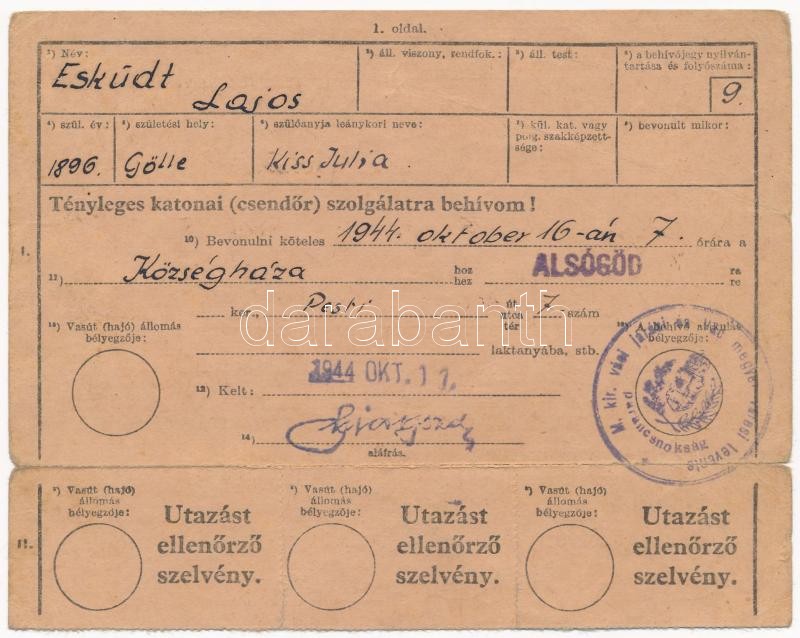 1. oldal.
¹) Név: ²) áll. viszony, rendfok.: ³) áll. test: ⁸) a behívójegy nyilván-
tartása és folyószáma:
Esküdt
Lajos 9.
⁴) szül. év: ⁵) születési hely: ⁶) szülőanyja leánykori neve: ⁷) kül. kat. vagy
polg. szakképzett-
sége: ⁹) bevonult mikor:
1896. Gölle Kiss Julia
Tényleges katonai (csendőr) szolgálatra behívom!
I. ¹⁰) Bevonulni köteles 1944. oktober 16-án 7. órára a
¹¹) Községháza hoz
hez ALSÓGÖD ra
re
ker., Pesti út
utca
tér 7 szám
darabanth
*) Vasút (hajó) állomás
bélyegzője:
A behívó alakulat
bélyegzője:
laktanyába, stb.
M. kir. váci járási és Vác megyei városi levente
parancsnokság
¹²) Kelt: 1944 OKT. 11.
¹⁴)
aláírás.
II. *) Vasút (hajó)
állomás
bélyegzője: Utazást
ellenőrző
szelvény.
*) Vasút (hajó)
állomás
bélyegzője: Utazást
ellenőrző
szelvény.
*) Vasút (hajó)
állomás
bélyegzője: Utazást
ellenőrző
szelvény.